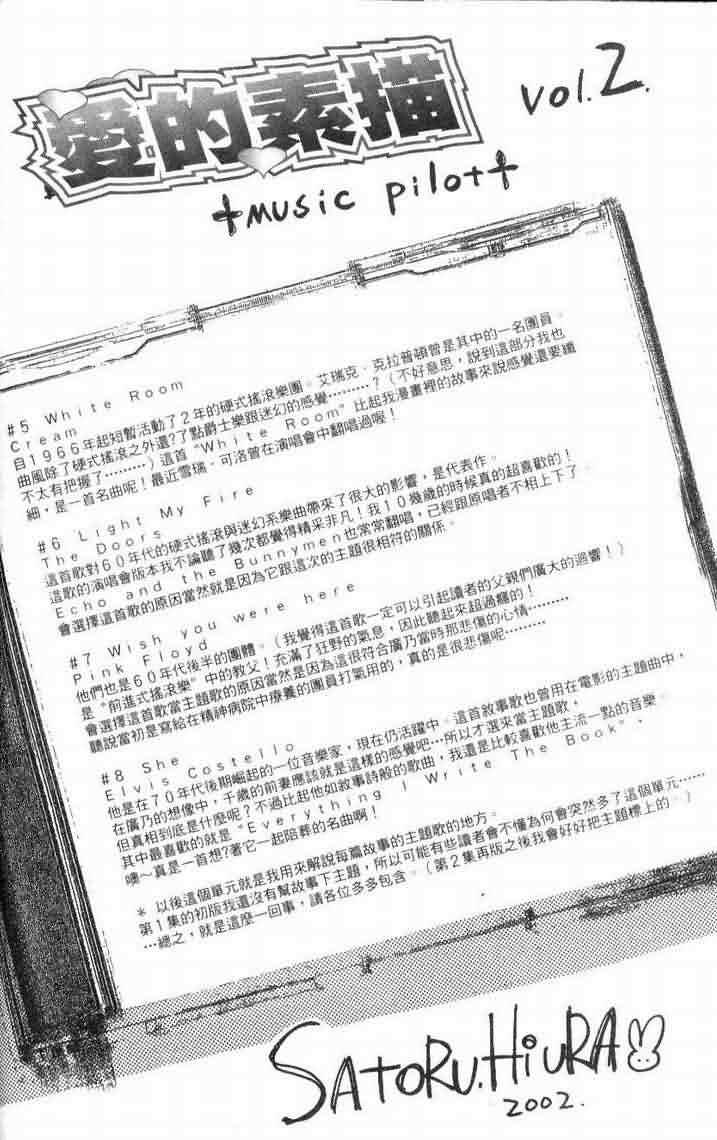 愛的素描
vol.2.
†music pilot†
#5 White Room
Cream
自1966年起短暫活動了2年的硬式搖滾樂團。艾瑞克．克拉普頓曾是其中的一名團員。
曲風除了硬式搖滾之外還?了點爵士樂跟迷幻的感覺………？（不好意思，說到這部分我也
不太有把握了………）這首“White Room”比起我漫畫裡的故事來說感覺還要纖
細，是一首名曲呢！最近雪瑞．可洛曾在演唱會中翻唱過喔！
#6 Light My Fire
The Doors
這首歌對60年代的硬式搖滾與迷幻系樂曲帶來了很大的影響，是代表作。
這歌的演唱會版本我不論聽了幾次都覺得精采非凡！我10幾歲的時候真的超喜歡的！
Echo and the Bunnymen也常常翻唱，已經跟原唱者不相上下了。
會選擇這首歌的原因當然就是因為它跟這次的主題很相符的關係。
#7 Wish you were here
Pink Floyd
他們也是60年代後半的團體。（我覺得這首歌一定可以引起讀者的父親們廣大的迴響！）
是“前進式搖滾樂”中的教父！充滿了狂野的氣息，因此聽起來超過癮的！
會選擇這首歌當主題歌的原因當然是因為這很符合廣乃當時那悲傷的心情………
聽說當初是寫給在精神病院中療養的團員打氣用的，真的是很悲傷呢………
#8 She
Elvis Costello
他是在70年代後期崛起的一位音樂家，現在仍活躍中。這首敘事歌也曾用在電影的主題曲中，
在廣乃的想像中，千歲的前妻應該就是這樣的感覺吧…所以才選來當主題歌，
但真相到底是什麼呢？不過比起他如敘事詩般的歌曲，我還是比較喜歡他主流一點的音樂。
其中最喜歡的就是“Everything I Write The Book”，
噢～真是一首想?著它一起陪葬的名曲啊！
＊ 以後這個單元就是我用來解說每篇故事的主題歌的地方。
第1集的初版我還沒有幫故事下主題，所以可能有些讀者會不懂為何會突然多了這個單元……
…總之，就是這麼一回事，請各位多多包含。（第2集再版之後我會好好把主題標上的。）
SATORU.HiURA
2002.